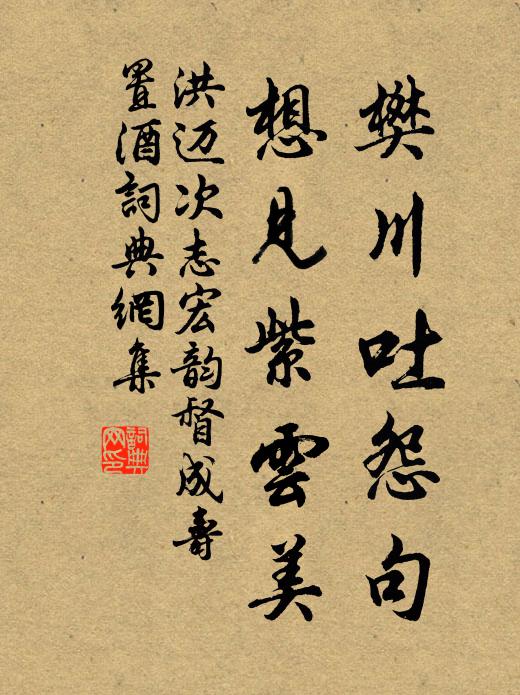 樊川吐怨句
想見紫雲美
洪迈次志宏韵督成壽
置酒詞典網集
詞典網印